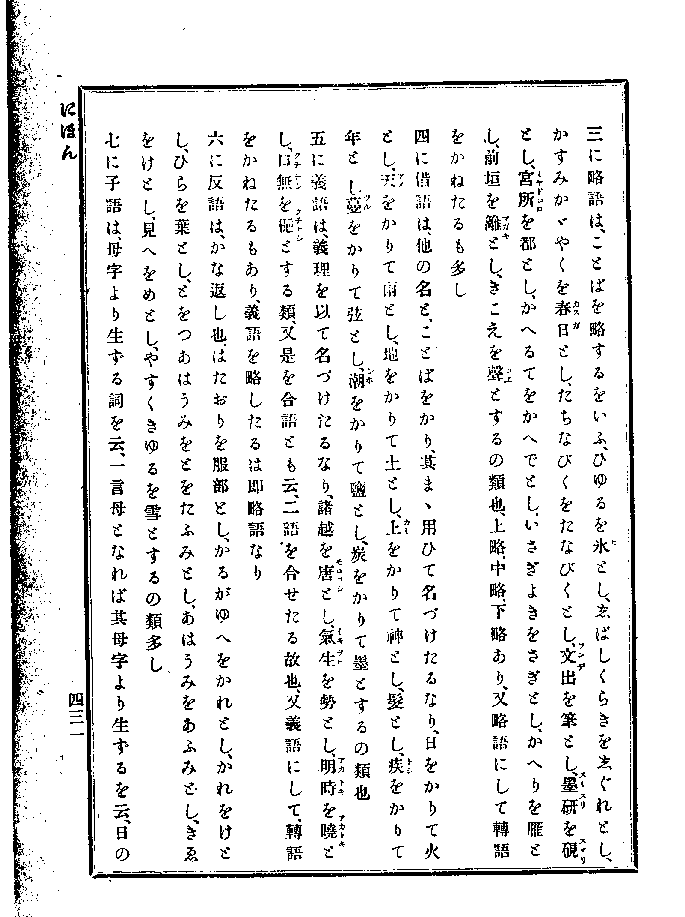 三に略語は、ことばを略するをいふ、ひゆるを氷とし、ゑばしくらきをゑぐれとし、
かすみかゞやくを春日とし、たちなびくをたなびくとし、文出を筆とし、墨研を硯
とし、宮所を都とし、かへるてをかへでとし、いさぎよきをさぎとし、かへりを雁と
し、前垣を籬とし、きこえを聲とするの類也、上略、中略、下略あり、又略語にして轉語
をかねたるも多し
四に借語は、他の名と、ことばをかり、其まゝ用ひて名づけたるなり、日をかりて火
とし、天をかりて雨とし、地をかりて土とし、上をかりて神とし、髮とし、疾をかりて
年とし、蔓をかりて弦とし、潮をかりて鹽とし、炭をかりて墨とするの類也
五に義語は、義理を以て名づけたるなり、諸越を唐とし、氣生を勢とし、明時を曉と
し、口無を梔とする類、又是を合語とも云、二語を合せたる故也、又義語にして、轉語
をかねたるもあり、義語を略したるは即略語なり
六に反語は、かな返し也、はたおりを服部とし、かるがゆへをかれとし、かれをけと
し、ひらを葉とし、とをつあはうみをとをたふみとし、あはうみをあふみとし、きゑ
をけとし、見へをめとし、やすくきゆるを雪とするの類多し
七に子語は、母字より生する詞を云、一言母となれば其母字より生ずるを云、日の
にほん
四三一